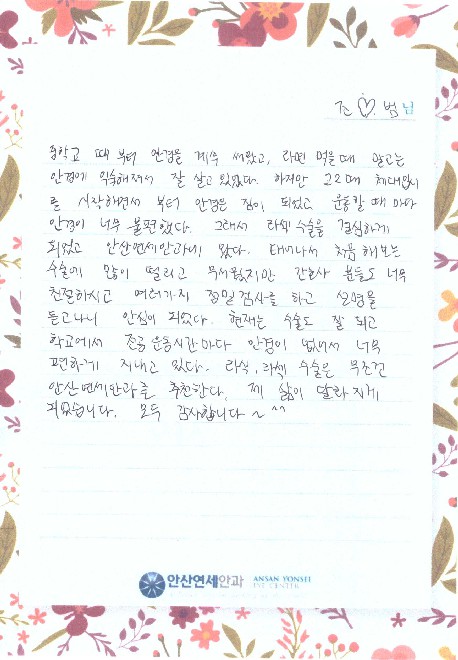 조♡범님
중학교 때 부터 안경을 계속 써왔고, 라면 먹을때 말고는
안경에 익숙해져서 잘 살고 있었다. 하지만 고2때 체대입시
를 시작하면서 부터 안경은 짐이 되었고 운동할 때 마다
안경이 너무 불편했다. 그래서 라섹 수술을 결심하게
되었고 안산연세안과에 왔다. 태어나서 처음 해보는
수술에 많이 떨리고 무서웠지만 간호사 분들도 너무
친절하시고 여러가지 정밀검사를 하고 설명을
듣고나니 안심이 되었다. 현재는 수술도 잘 되고
학교에서 전공 운동시간마다 안경이 없어서 너무
편하게 지내고 있다. 라식, 라섹 수술은 무조건
안산연세안과를 추천한다. 제 삶이 달라지게
되었습니다. 모두 감사합니다~^^
안산연세안과 ANSAN YONSEI
EYE CENTER